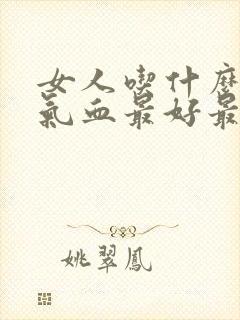 女人喫什麼
氣血最好最
姚翠鳳